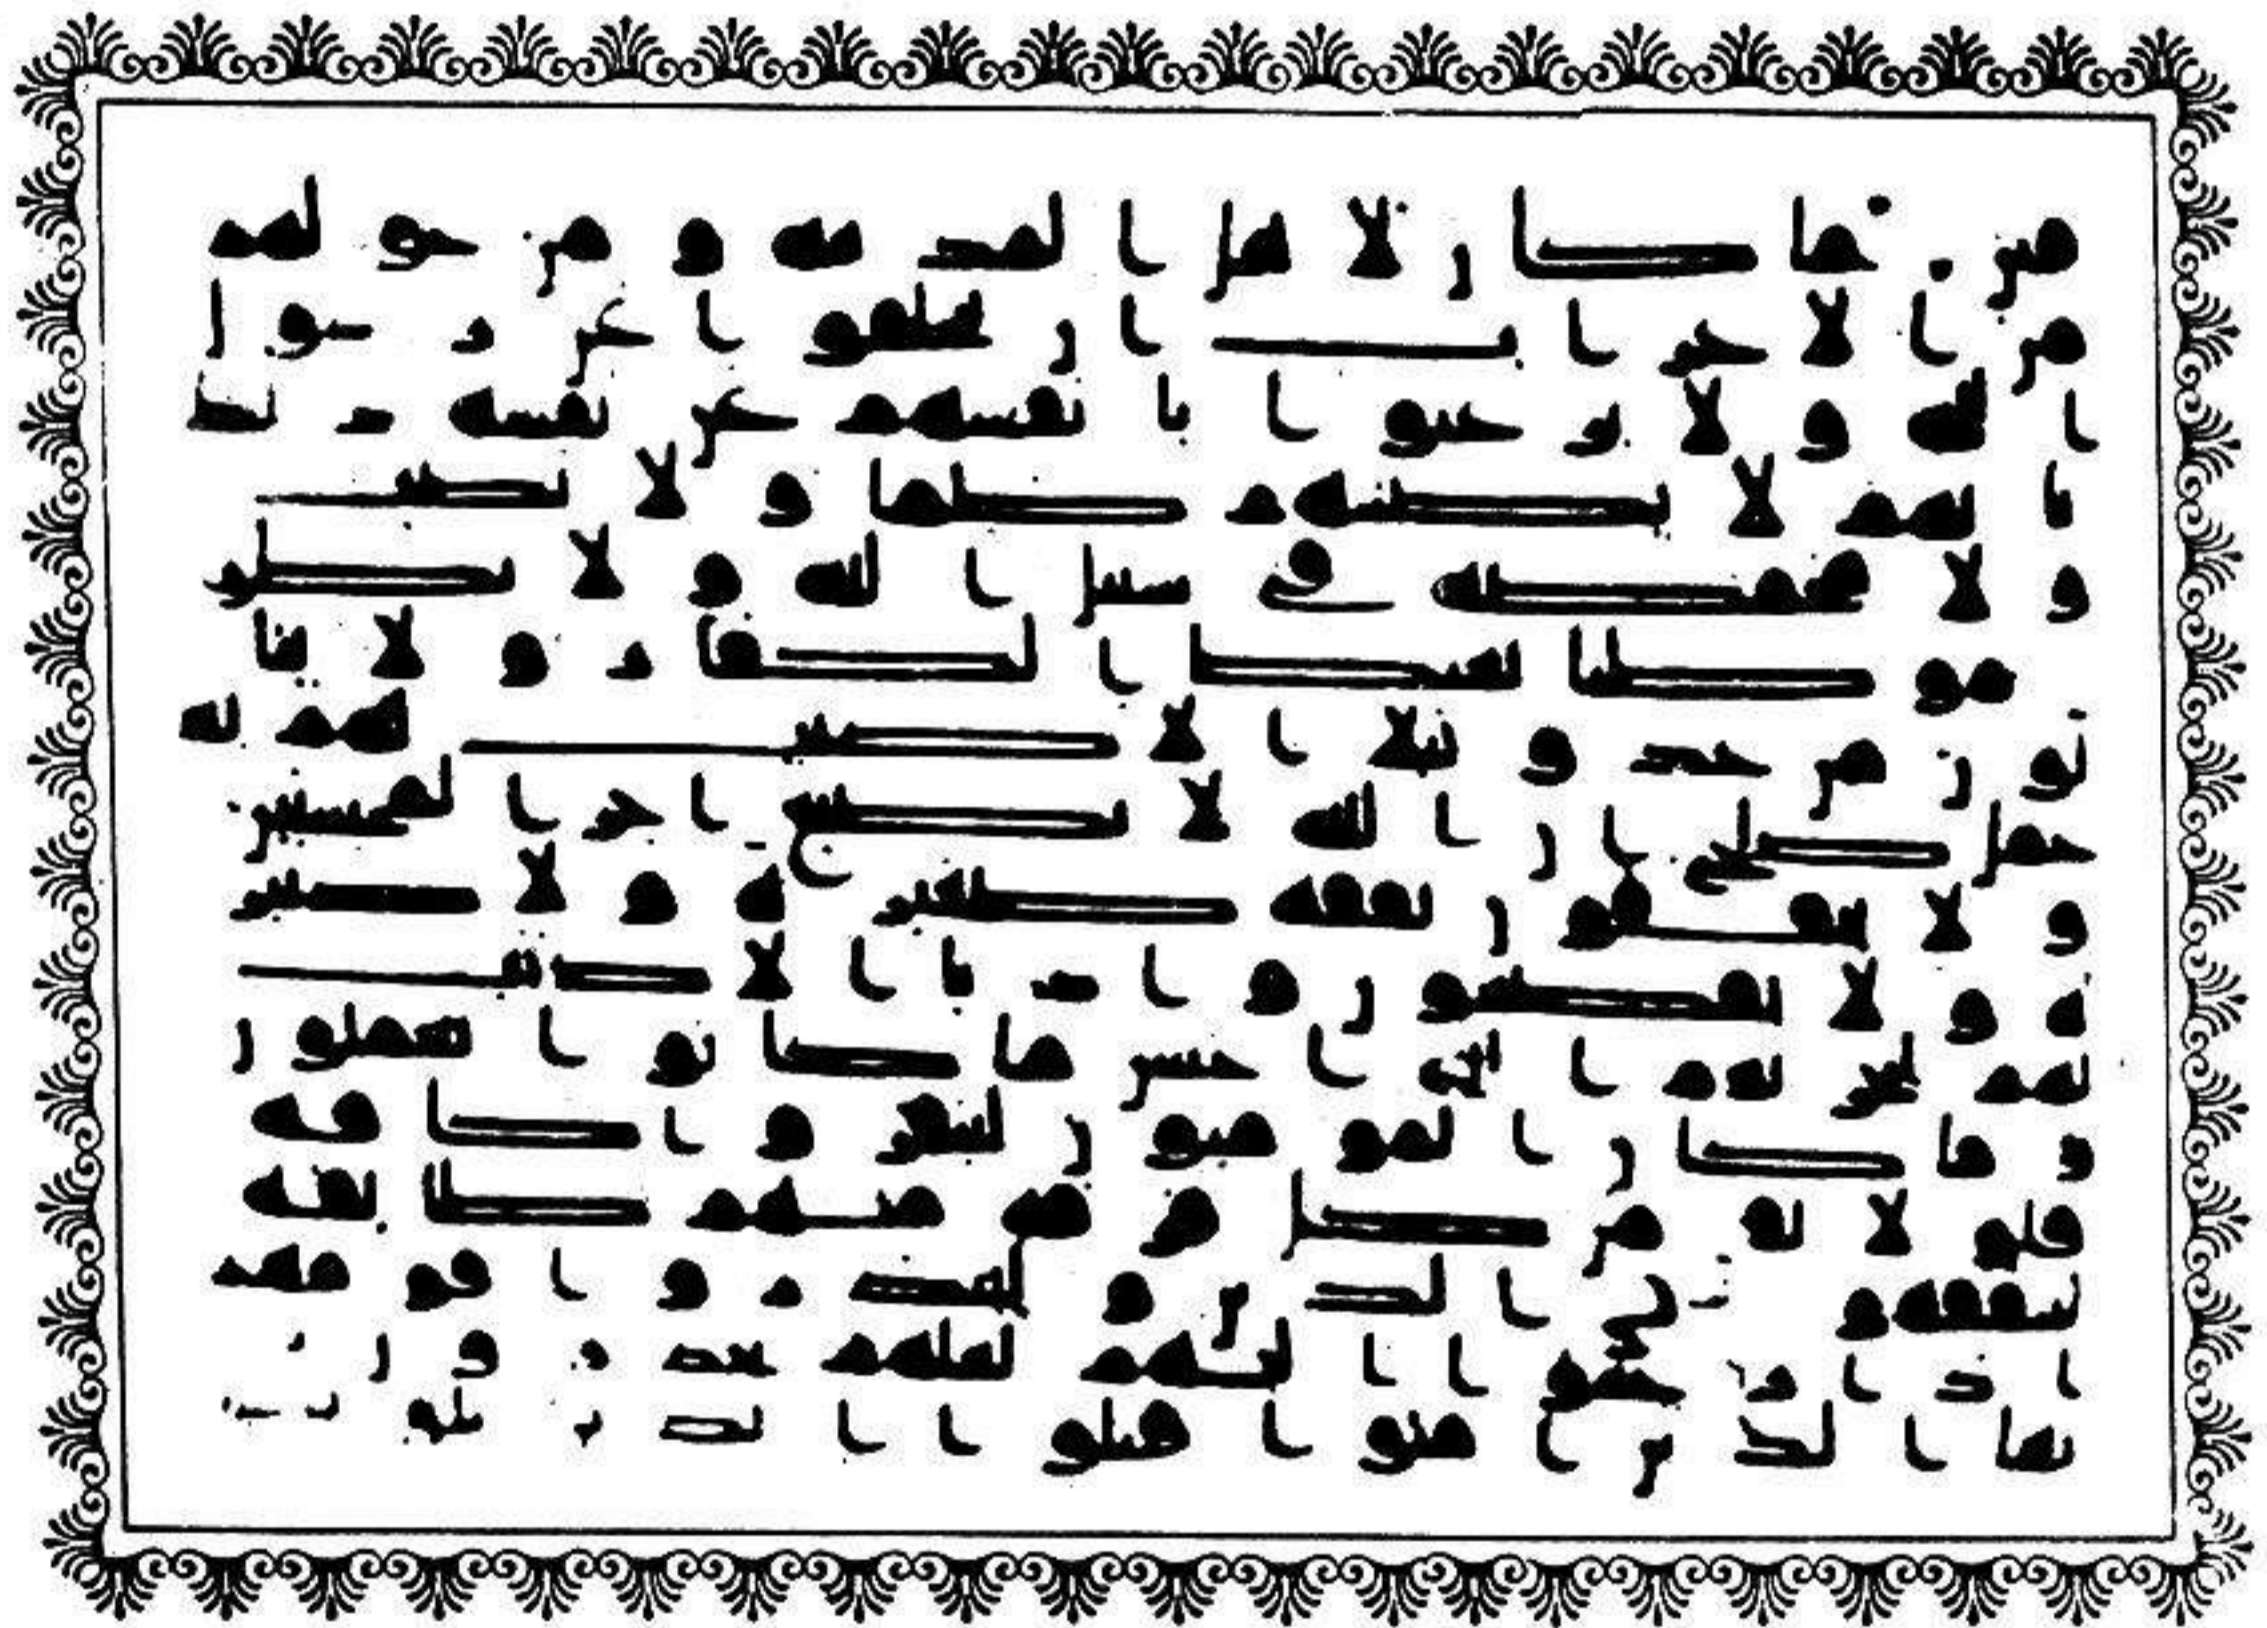 قين ما كان لاهل المدينه ومن حولهم
من الاعراب ان يتخلفوا عن رسول
الله ولا يرغبوا بانفسهم عن نفسه ذلك
بانهم لا يصيبهم ظما ولا نصب
ولا مخمصه في سبيل الله ولا يطون
موطيا يغيظ الكفار ولا ينا
لون من عدو نيلا الا كتب لهم به
عمل صلح ان الله لا يضيع اجر المحسنين
ولا ينفقون نفقه صغيره ولا كبير
ه ولا يقطعون واديا الا كتب
لهم ليجزيهم الله احسن ما كانوا يعملون
وما كان المومنون لينفروا كافه
فلولا نفر من كل فرقه منهم طايفه
ليتفقهوا في الدين ولينذروا قومهم
اذا رجعوا اليهم لعلهم يحذرون
يها الذين امنوا قتلوا الذين يلو